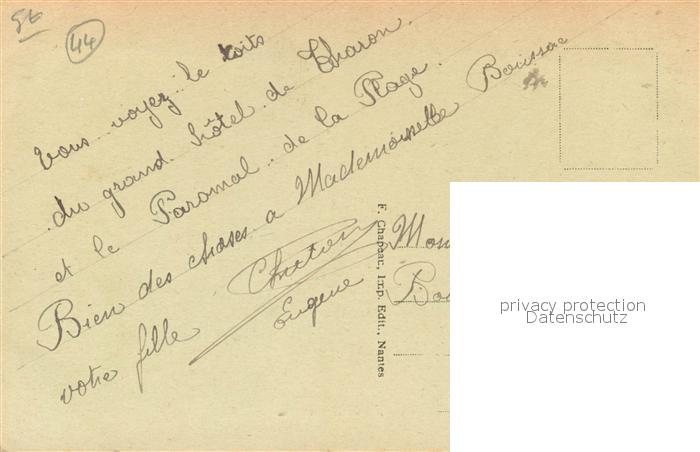 44
Vous voyez le toits
du grand hôtel de Tharon.
et le Paramal. de la Plage.
Bien des choses a Mademoiselle Boussac
votre fille
Eugene
F. Chapeau, Imp. Edit., Nantes
privacy protection
Datenschutz